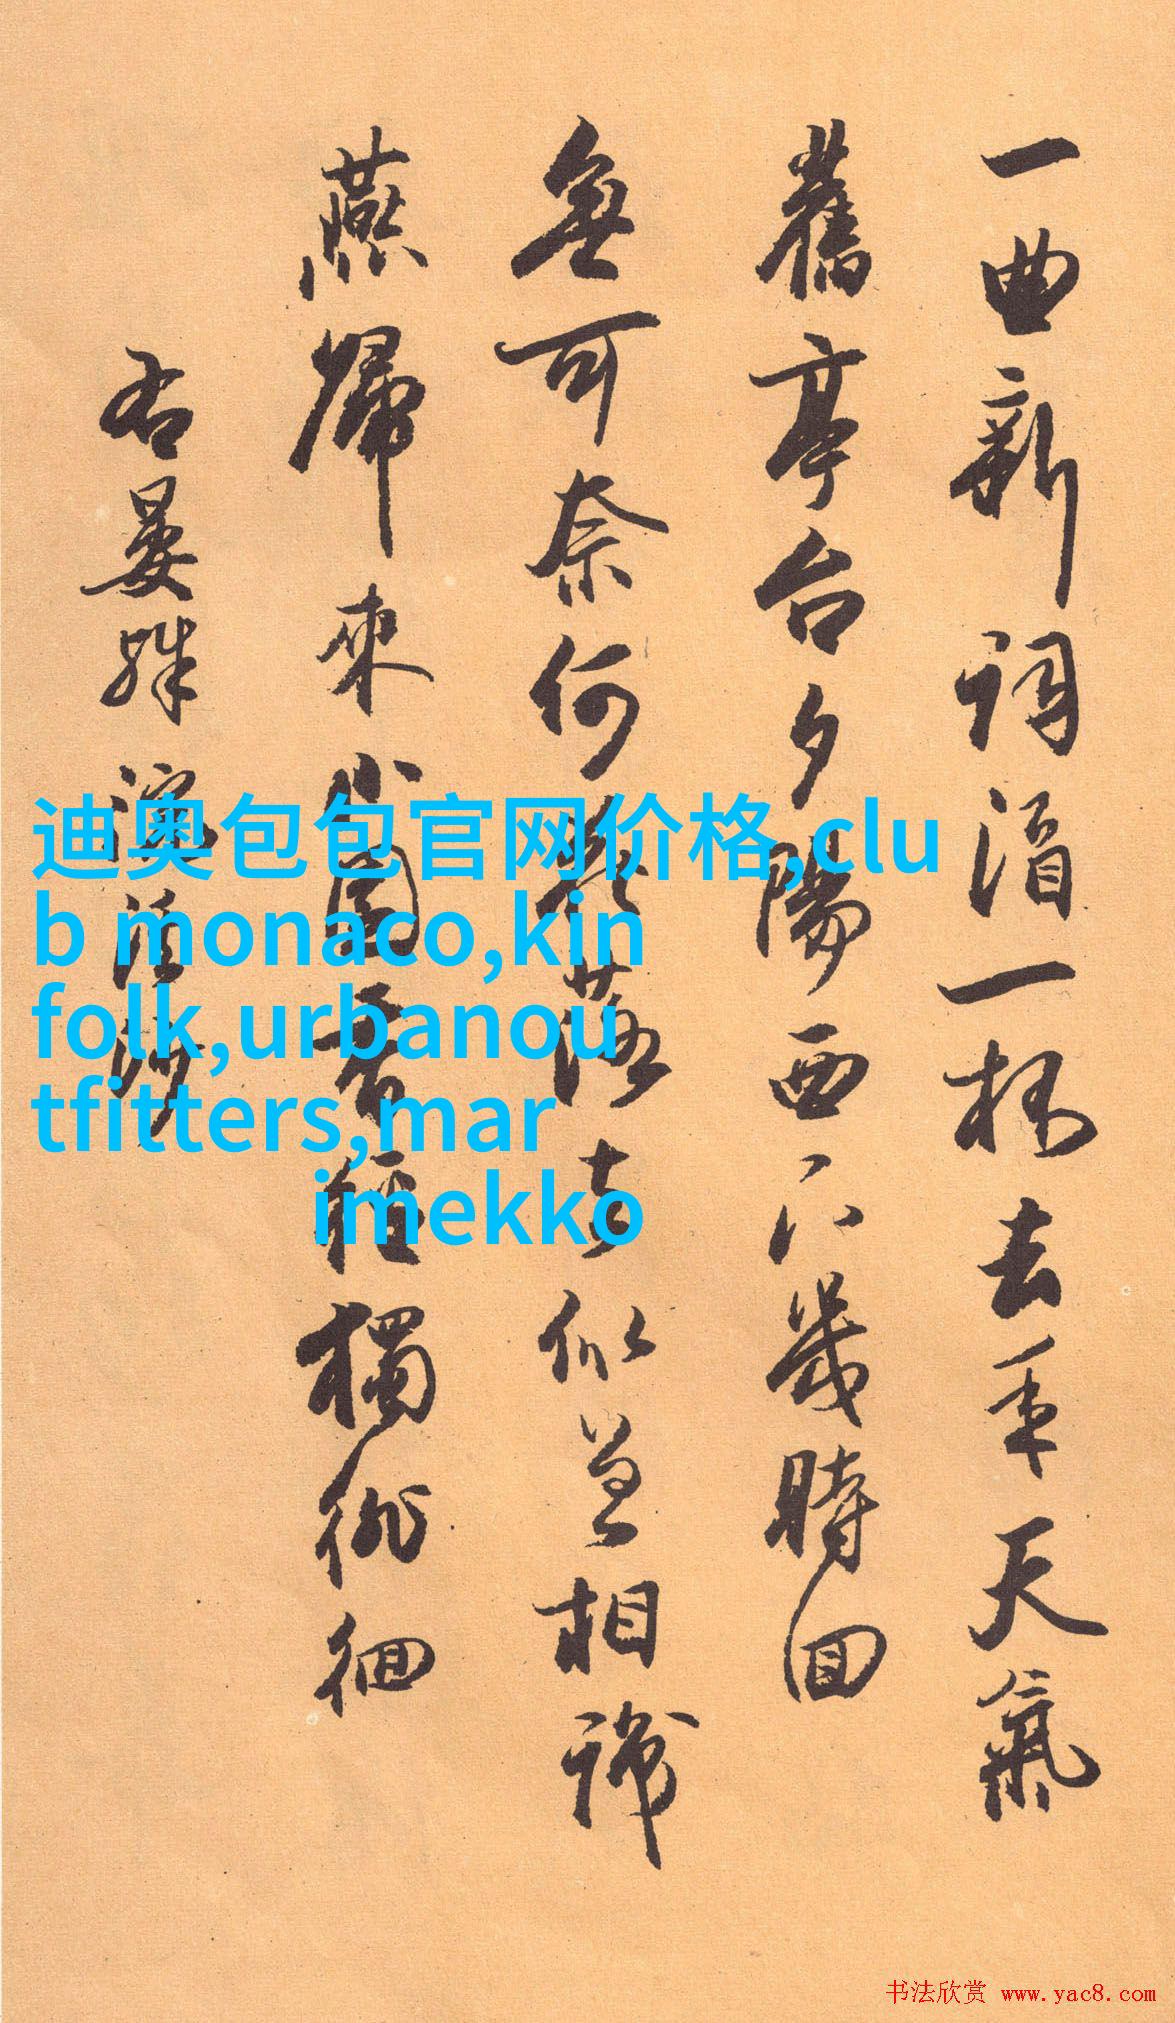 一曲新词酒一杯去年天氣
舊亭台夕陽西下幾時回
無可奈何花落去似曾相識
燕歸來小園香徑獨徘徊
右晏殊浣溪沙
迪奥包包官网价格,clu
b monaco,kin
folk,urbanou
tfitters,mar
imekko
书法欣赏 www.yac8.com